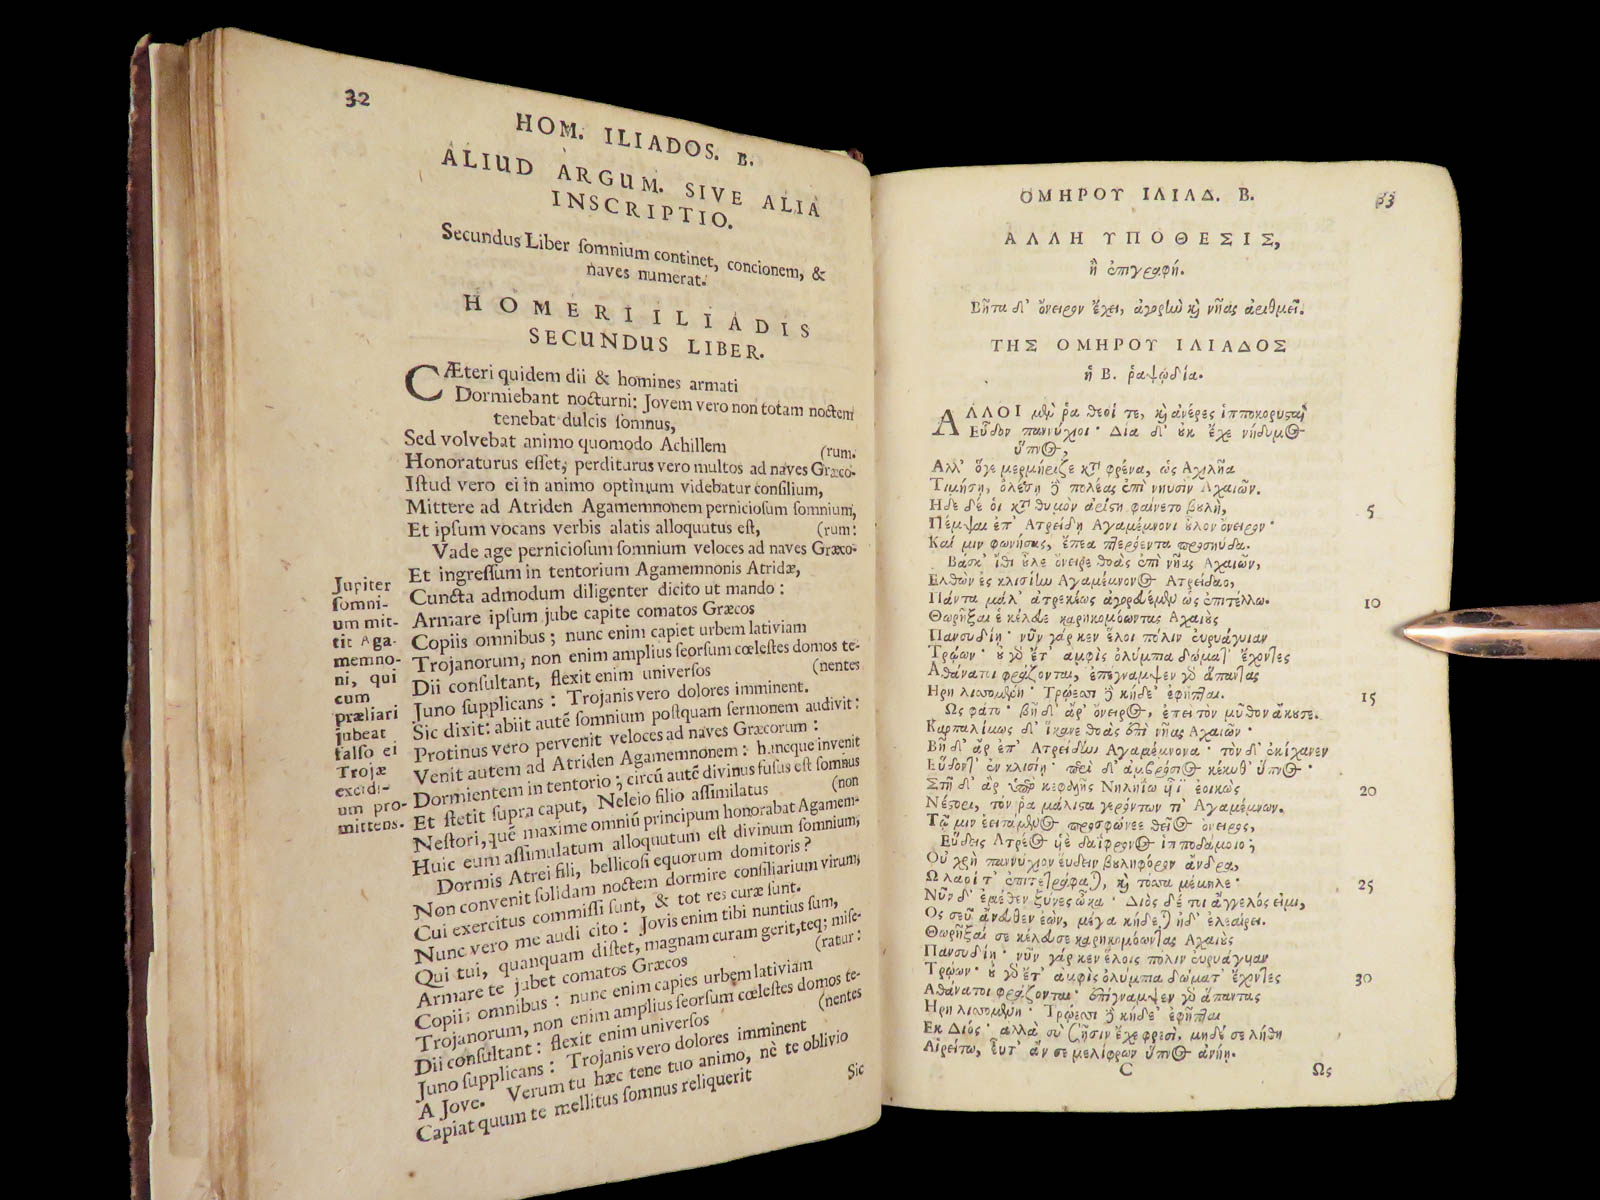 32
HOM. ILIADOS. B.
ALIUD ARGUM. SIVE ALIA
INSCRIPTIO.
Secundus Liber ſomnium continet, concionem, &
naves numerat.
HOMERI ILIADIS
SECUNDUS LIBER.
CÆteri quidem dii & homines armati
Dormiebant nocturni: Jovem vero non totam noctem
tenebat dulcis ſomnus,
Sed volvebat animo quomodo Achillem (rum.
Honoraturus eſſet, perditurus vero multos ad naves Græco-
Iſtud vero ei in animo optimum videbatur conſilium,
Mittere ad Atriden Agamemnonem pernicioſum ſomnium,
Et ipſum vocans verbis alatis alloquutus eſt, (rum:
Vade age pernicioſum ſomnium veloces ad naves Græco-
Et ingreſſum in tentorium Agamemnonis Atridæ,
Cuncta admodum diligenter dicito ut mando:
Armare ipſum jube capite comatos Græcos
Copiis omnibus; nunc enim capiet urbem lativiam
Trojanorum, non enim amplius ſeorſum cœleſtes domos te-
Dii conſultant, flexit enim univerſos (nentes
Juno ſupplicans: Trojanis vero dolores imminent.
Sic dixit: abiit autē ſomnium poſtquam ſermonem audivit:
Protinus vero pervenit veloces ad naves Græcorum:
Venit autem ad Atriden Agamemnonem: huncque invenit
Dormientem in tentorio; circū autē divinus fuſus eſt ſomnus
Et ſtetit ſupra caput, Neleio filio aſſimilatus (non
Neſtori, quē maxime omniū principum honorabat Agamem-
Huic eum aſſimulatum alloquutum eſt divinum ſomnium,
Dormis Atrei fili, bellicoſi equorum domitoris?
Non convenit ſolidam noctem dormire conſiliarium virum,
Cui exercitus commiſſi ſunt, & tot res curæ ſunt.
Nunc vero me audi cito: Jovis enim tibi nuntius ſum,
Qui tui, quanquam diſtet, magnam curam gerit, teq; miſe-
Armare te jubet comatos Græcos (ratur:
Copiis omnibus: nunc enim capies urbem lativiam
Trojanorum, non enim amplius ſeorſum cœleſtes domos te-
Dii conſultant: flexit enim univerſos (nentes
Juno ſupplicans: Trojanis vero dolores imminent
A Jove. Verum tu hæc tene tuo animo, nè te oblivio
Capiat quum te mellitus ſomnus reliquerit
Sic
Jupiter
ſomni-
um mit-
tit Aga-
memno-
ni, qui
cum
præliari
jubeat
falſo ei
Trojæ
excidi-
um pro-
mittens.
33
ΟΜΗΡΟΥ ΙΛΙΑΔ. Β.
ΑΛΛΗ ΥΠΟΘΕΣΙΣ,
ἢ ἐπιγραφή.
Βῆτα δ' ὄνειρον ἔχει, ἀγορὴν καὶ νῆας ἀριθμεῖ.
ΤΗΣ ΟΜΗΡΟΥ ΙΛΙΑΔΟΣ
ἡ Β. ῥαψῳδία.
ΑΛΛΟΙ μὲν ῥα θεοί τε, καὶ ἀνέρες ἱπποκορυσταὶ
Εὗδον παννύχιοι· Δία δ' οὐκ ἔχε νήδυμος
ὕπνος,
Αλλ' ὅγε μερμήριζε κατὰ φρένα, ὡς Αχιλῆα
Τιμήσῃ, ὀλέσῃ δὲ πολέας ἐπὶ νηυσὶν Αχαιῶν.
Ηδε δέ οἱ κατὰ θυμὸν ἀρίστη φαίνετο βουλὴ, 5
Πέμψαι ἐπ' Ατρείδῃ Αγαμέμνονι οὖλον ὄνειρον·
Καί μιν φωνήσας, ἔπεα πτερόεντα προσηύδα.
Βάσκ' ἴθι οὖλε ὄνειρε θοὰς ἐπὶ νῆας Αχαιῶν,
Ελθὼν ἐς κλισίην Αγαμέμνονος Ατρείδαο,
Πάντα μάλ' ἀτρεκέως ἀγορευέμεν ὡς ἐπιτέλλω. 10
Θωρῆξαι ἑ κέλευε καρηκομόωντας Αχαιοὺς
Πανσυδίῃ· νῦν γάρ κεν ἕλοι πόλιν εὐρυάγυιαν
Τρώων· οὐ γὰρ ἔτ' ἀμφὶς ὀλύμπια δώματ' ἔχοντες
Αθάνατοι φράζονται, ἐπέγναμψεν γὰρ ἅπαντας
Ηρη λισσομένη· Τρώεσσι δὲ κήδε' ἐφῆπται. 15
Ως φάτο· βῆ δ' ἄρ' ὄνειρος, ἐπεὶ τὸν μῦθον ἄκουσε.
Καρπαλίμως δ' ἵκανε θοὰς ἐπὶ νῆας Αχαιῶν·
Βῆ δ' ἄρ ἐπ' Ατρείδην Αγαμέμνονα· τὸν δ' ἐκίχανεν
Εὕδοντ' ἐν κλισίῃ· περὶ δ' ἀμβρόσιος κέχυθ' ὕπνος·
Στῆ δ' ἂρ ὑπὲρ κεφαλῆς Νηληΐῳ υἷϊ ἐοικὼς 20
Νέστορι, τόν ῥα μάλιστα γερόντων τῖ' Αγαμέμνων.
Τῷ μιν ἐεισάμενος προσφώνεε θεῖος ὄνειρος,
Εὕδεις Ατρέος υἱὲ δαΐφρονος ἱπποδάμοιο;
Οὐ χρὴ παννύχιον εὕδειν βουληφόρον ἄνδρα,
Ωι λαοί τ' ἐπιτετράφαται, καὶ τόσσα μέμηλε· 25
Νῦν δ' ἐμέθεν ξύνες ὦκα· Διὸς δέ τοι ἄγγελός εἰμι,
Ος σεῦ ἄνευθεν ἐὼν, μέγα κήδεται ἠδ' ἐλεαίρει.
Θωρῆξαί σε κέλευσε καρηκομόωντας Αχαιοὺς
Πανσυδίῃ· νῦν γάρ κεν ἕλοις πόλιν εὐρυάγυιαν
Τρώων· οὐ γὰρ ἔτ' ἀμφὶς ὀλύμπια δώματ' ἔχοντες 30
Αθάνατοι φράζονται· ἐπέγναμψεν γὰρ ἅπαντας
Ηρη λισσομένη· Τρώεσσι δὲ κήδε' ἐφῆπται
Εκ Διός· ἀλλὰ σὺ σῇσιν ἔχε φρεσὶ, μηδέ σε λήθη
Αἱρείτω, εὖτ' ἄν σε μελίφρων ὕπνος ἀνήῃ.
C Ως